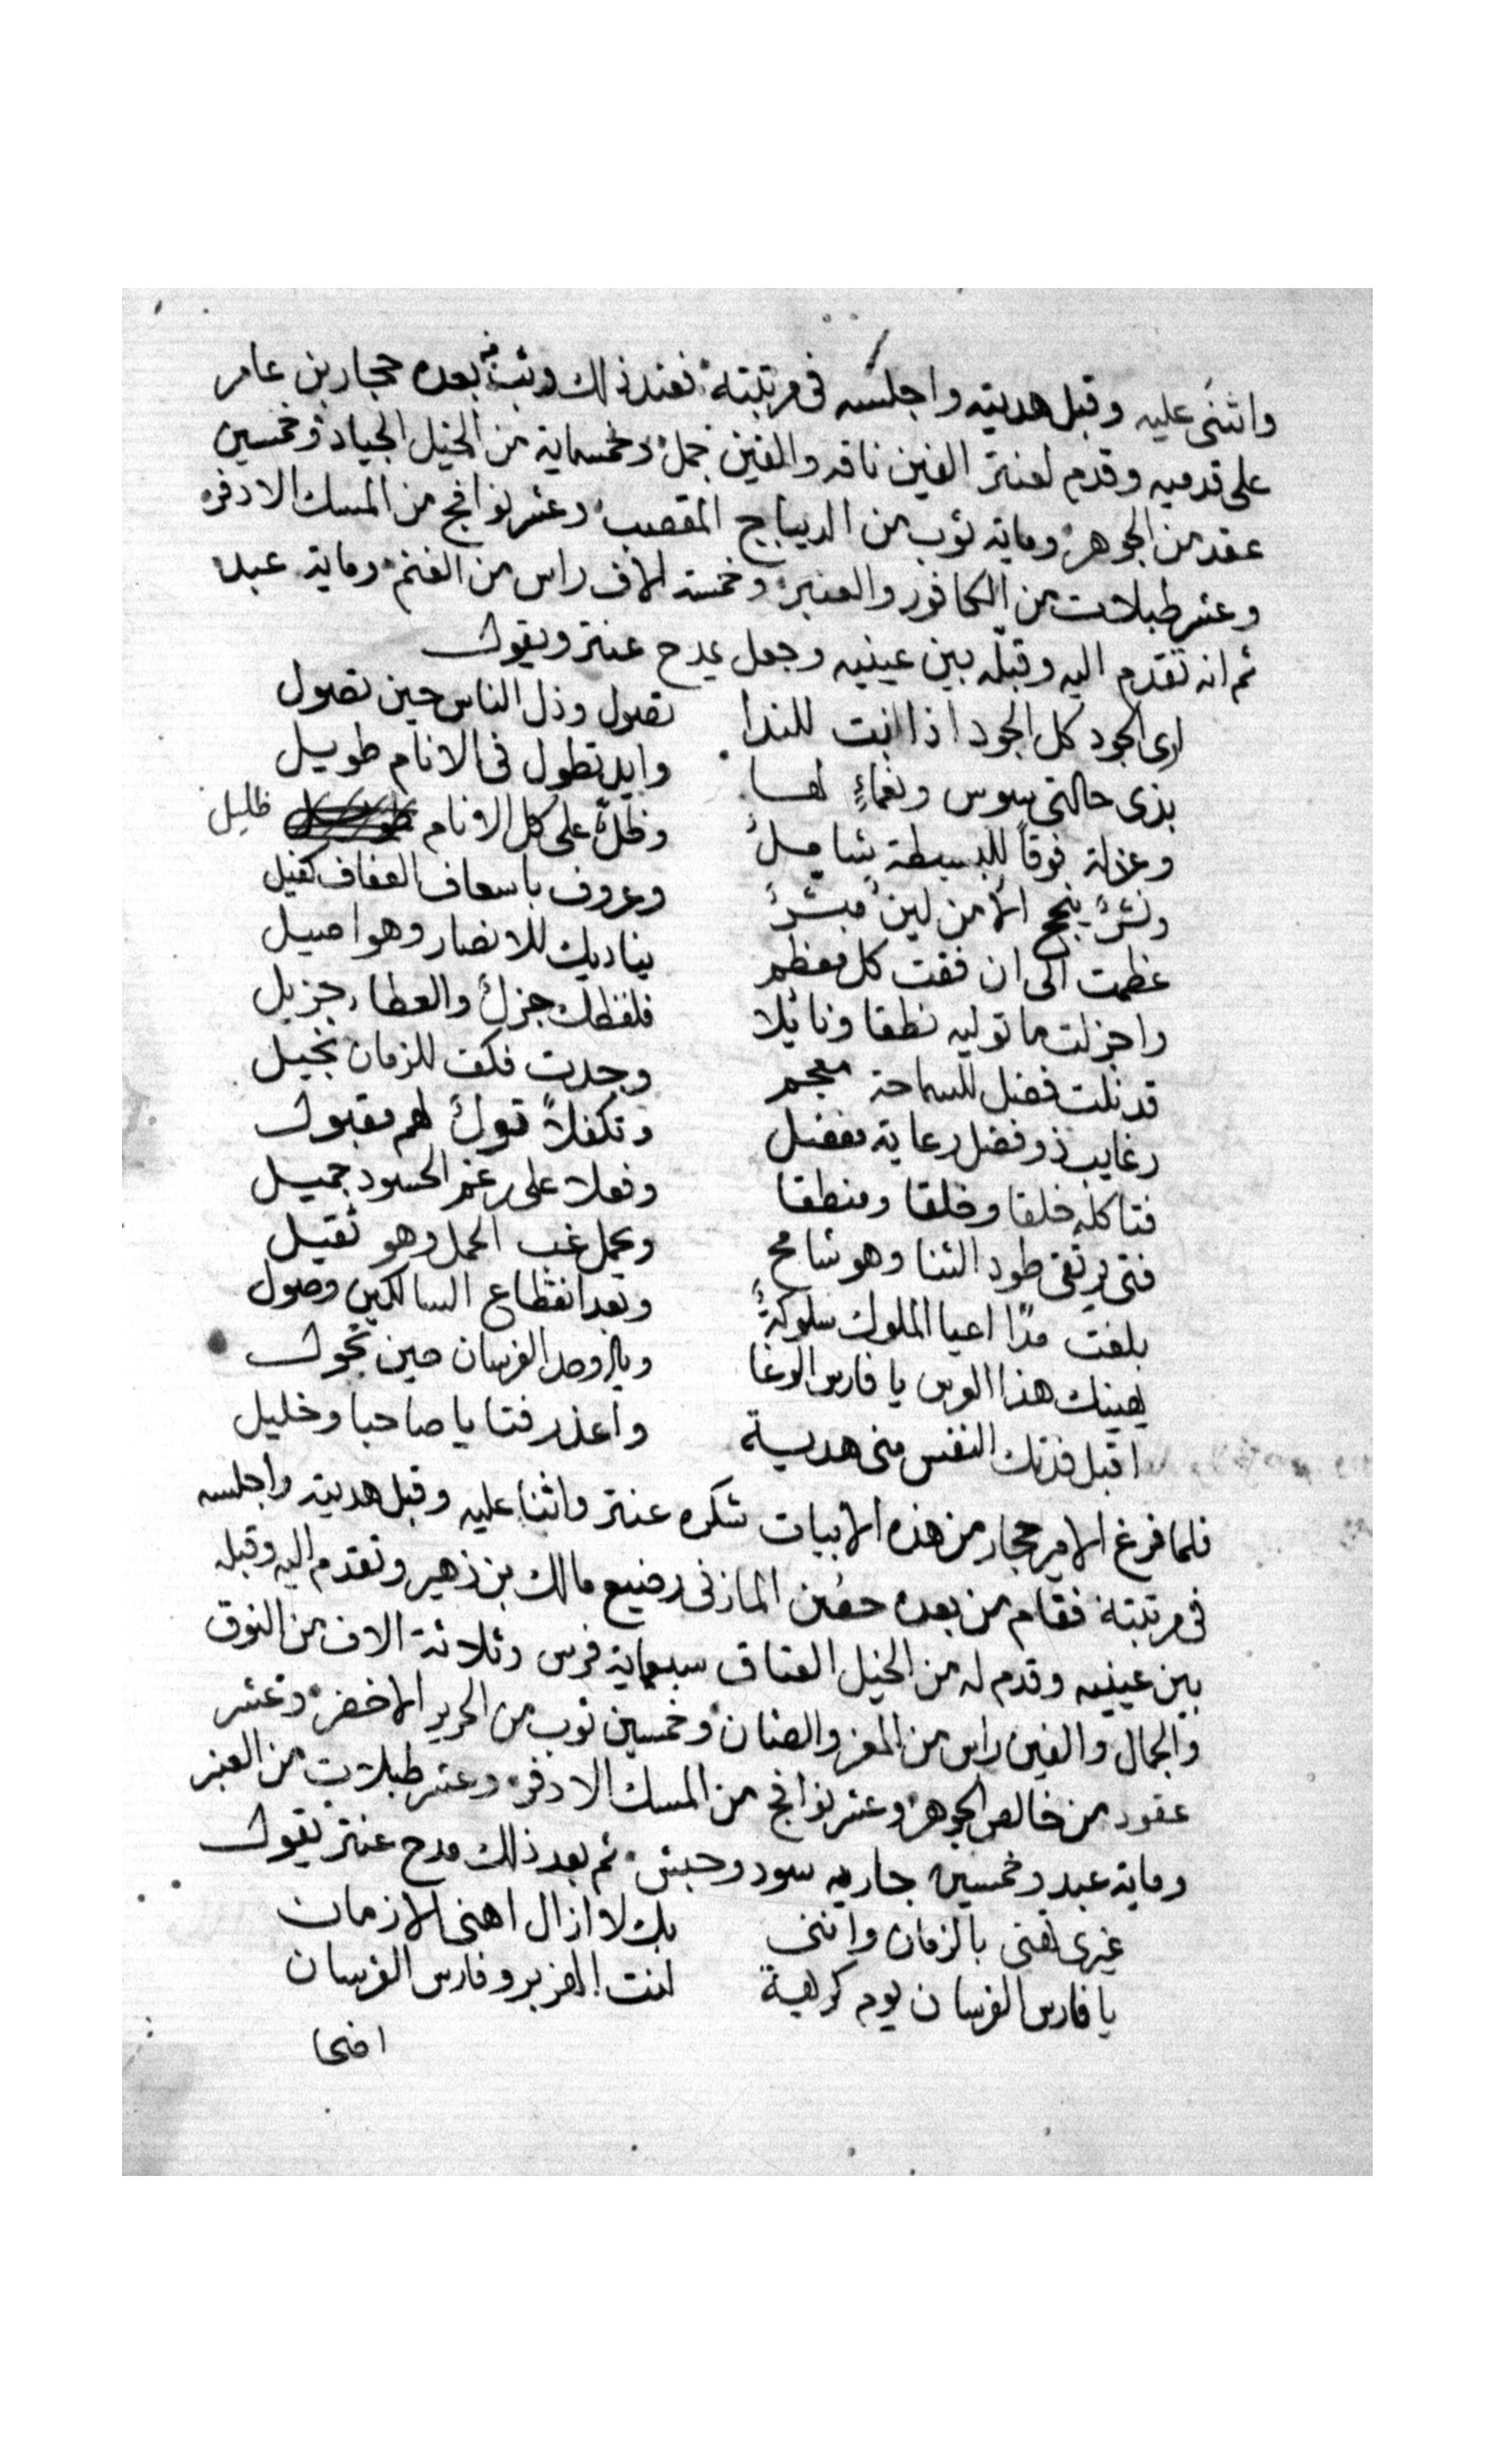 واثنى عليه وقبل هديته واجلسه فى مرتبته فعند ذلك وثب من بعده حجار بن عامر
على قدميه وقدم لعنتر الفين ناقه والفين جمل وخمسماية من الخيل الجياد وخمسين
عقد من الجوهر وماية ثوب من الديباج المقصب وعشر نوافج من المسك الادفر
وعشر طبلات من الكافور والعنبر وخمسة الاف راس من الغنم وماية عبد
ثم انه تقدم اليه وقبله بين عينيه وجعل يمدح عنتر ويقول
ارى الجود كل الجود اذا انت للندا تصول وذل الناس حين تصول
بذى حالتى بوس ونعماءٍ لها وايد تطول فى الانام طويل
وعزلة فوقاً للبسيطة شاملٌ وظلٌ على كل الانام ظليل
ونشرٌ بنجح الامن لين مبشرٌ وعروف باسعاف العفاف كفيل
عظمت الى ان فقت كل معظم يناديك للانصار وهو اصيل
واجزلت ما توليه نطقا ونائلا فلفظك جزلٌ والعطاء جزيل
قد نلت فضل للسماحة معجم وجدت فكف للزمان بخيل
رغايب ذو فضل رعاية مفضل وتكفلاً قولٌ لهم مقبول
فتا كله خلقا وخلقا ومنطقا وفعلا على رغم الحسود جميل
فتى يرتقى طود الثنا وهو شامخ ويحمل غب الحمل وهو ثقيل
بلغت مدًا اعيا الملوك سلوكهُ وبعد انقطاع السالكين وصول
يهنيك هذا العرس يا فارس الوغا ويا اوحد الفرسان حين تجول
اقبل فدتك النفس منى هدية واعذر فتا يا صاحبا وخليل
فلما فرغ الامير حجار من هذه الابيات شكره عنتر واثنا عليه وقبل هديته واجلسه
فى مرتبته فقام من بعده حصن المازنى رضيع مالك بن زهير وتقدم اليه وقبله
بين عينيه وقدم له من الخيل العتاق سبعماية فرس وثلاثة الاف من النوق
والجمال والفين راس من المعز والضان وخمسين ثوب من الحرير الاخضر وعشر
عقود من خالص الجوهر وعشر نوافج من المسك الادفر وعشر طبلات من العنبر
وماية عبد وخمسين جاريه سود وحبش ثم بعد ذلك مدح عنتر يقول
غيرى يهنى بالزمان واننى بك لا ازال اهنى الازمان
يا فارس الفرسان يوم كريهة انت الهزبر وفارس الفرسان
اضحا